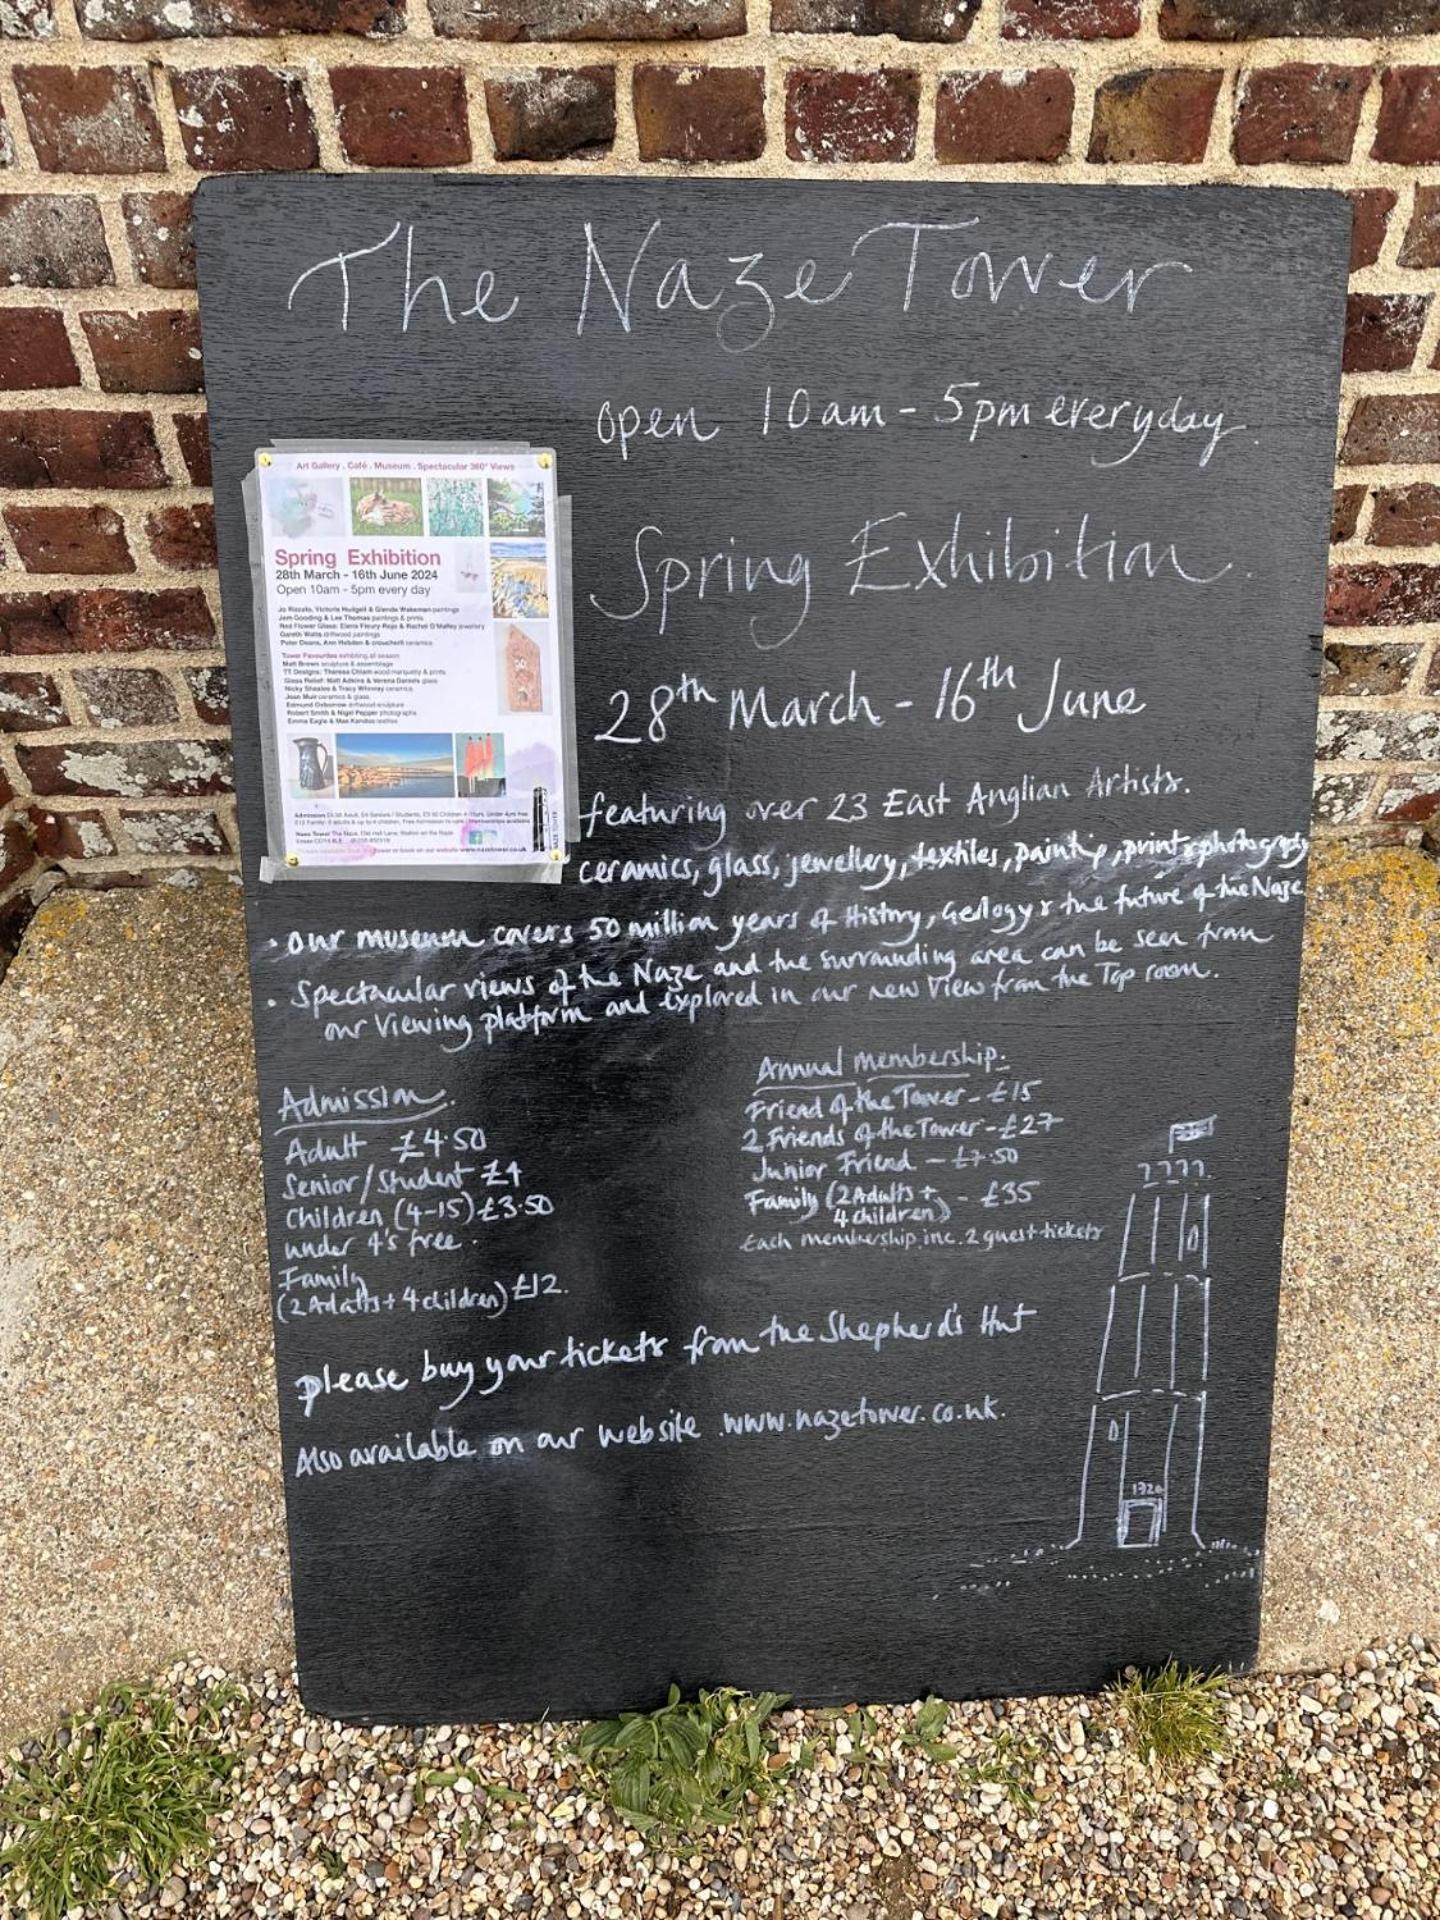 The Naze Tower
open 10am - 5pm everyday.
Art Gallery . Café . Museum . Spectacular 360° Views
Spring Exhibition
28th March - 16th June 2024
Open 10am - 5pm every day
Jo Rizzato, Victoria Hudgell & Glenda Wakeman paintings
Jem Gooding & Lee Thomas paintings & prints
Red Flower Glass: Elena Fleury-Rojo & Rachel O'Malley jewellery
Gareth Watts driftwood paintings
Peter Deans, Ann Hebden & croucherli ceramics
Tower Favourites exhibiting all season
Matt Brown sculpture & assemblage
TT Designs: Theresa Chiam wood marquetry & prints
Glass Relief: Matt Adkins & Verena Daniels glass
Nicky Sheales & Tracy Whinney ceramics
Joan Muir ceramics & glass
Edmund Osborrow driftwood sculpture
Robert Smith & Nigel Pepper photographs
Emma Eagle & Mae Kandoo textiles
Spring Exhibition.
28th March - 16th June
featuring over 23 East Anglian Artists.
ceramics, glass, jewellery, textiles, painting, print & photography
· Our museum covers 50 million years of History, Geology & the future of the Naze
· Spectacular views of the Naze and the surrounding area can be seen from
our Viewing platform and explored in our new View from the Top room.
Admission.
Adult £4.50
Senior/Student £4
Children (4-15) £3.50
under 4's free.
Family
(2 Adults + 4 children) £12.
Annual Membership.
Friend of the Tower - £15
2 Friends of the Tower - £27
Junior Friend - £7.50
Family (2 Adults + - £35
4 children)
Each membership inc. 2 guest tickets
please buy your tickets from the Shepherd's Hut
Also available on our website . www.nazetower.co.uk.
1720